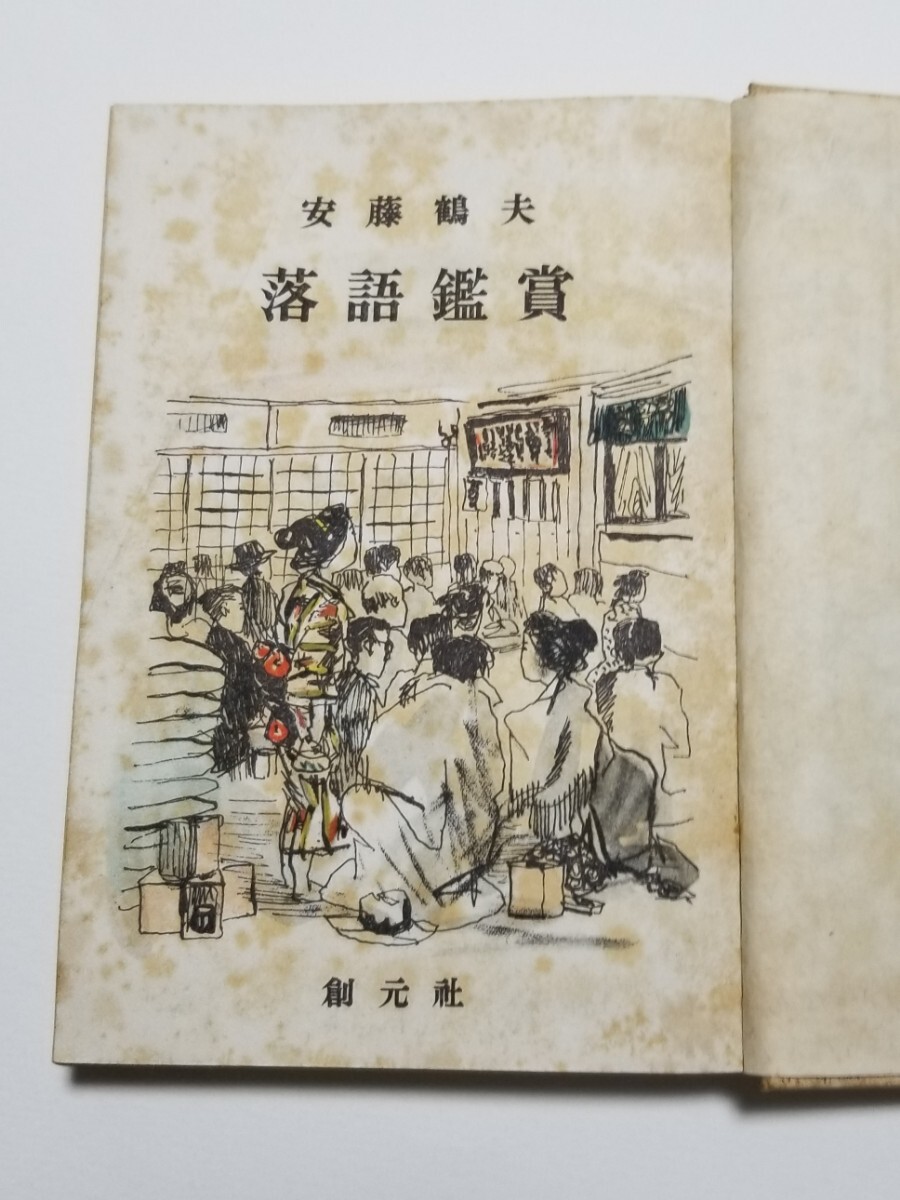 安藤鶴夫
落語鑑賞
創元社